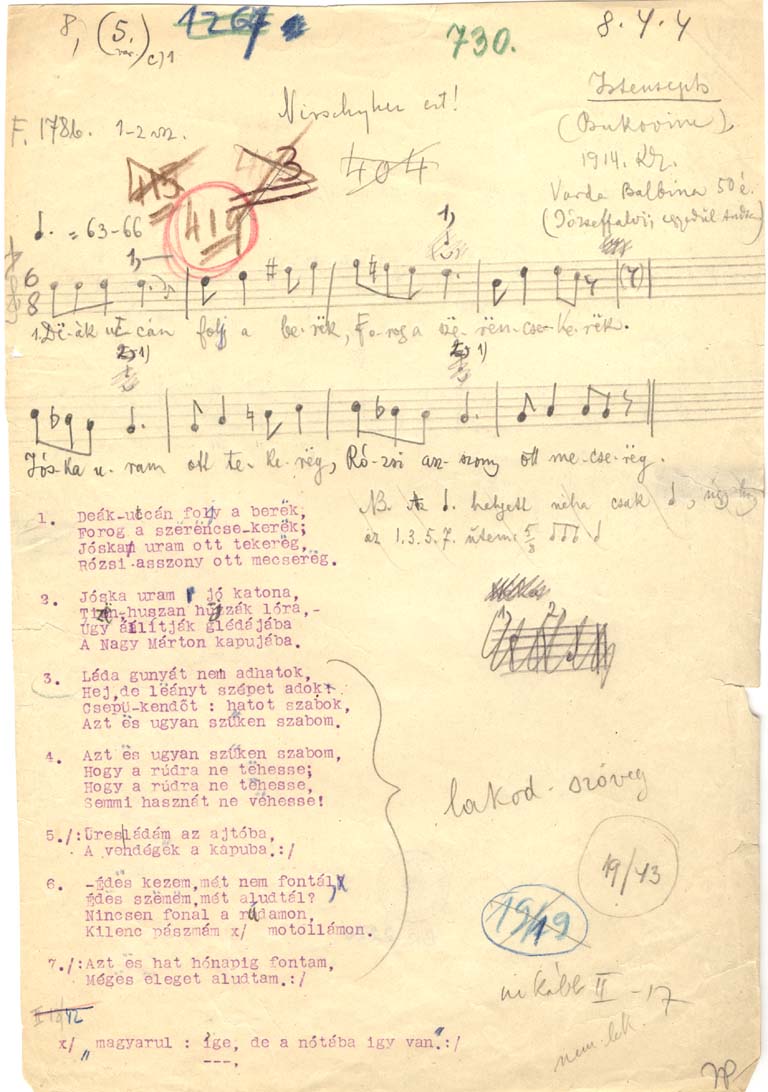 8, (5. var.) c)1
1267
730.
8.4.4
Istensegíts
(Bukovina)
1914. Kz.
Varda Balbina 50 é.
(Józseffalvi;
F. 1786. 1-2 sz.
413
3
404
419
= 63-66
1,
1,
6
8
1. Dë-ák uc-cán foly a be-rëk, Fo-rog a szë-rën-cse-ke-rëk.
2, 1)
2, 1)
Jós-ka u-ram ott te-ke-rëg, Ró-zsi asz-szony ott me-cse-rëg.
NB. Az helyett néha csak
az 1.3.5.7. ütem: 5/8
1. Deák-uccán foly a berëk,
Forog a szërëncse-kerëk;
Jóska uram ott tekerëg,
Rózsi asszony ott mecserëg.
2. Jóska uram jó katona,
Tizën-huszan húzzák lóra,-
Úgy állítják glédájába
A Nagy Márton kapujába.
1) 2)
3. Láda gunyát nem adhatok,
Hej, de lëányt szépet adok:
Csepü-kendőt : hatot szabok,
Azt ës ugyan szűken szabom.
4. Azt ës ugyan szűken szabom,
Hogy a rúdra ne tëhesse;
Hogy a rúdra ne tëhesse,
Semmi hasznát ne vëhesse!
lakod. szöveg
5./:Üresládám az ajtóba,
A vendégëk a kapuba.:/
19/43
6. -Édës kezem,mét nem fontál, x
Édës szëmëm,mét aludtál?
Nincsen fonal a rúdamon,
Kilenc pászmám x/ motollámon.
19/19
7./:Azt ës hat hónapig fontam,
Mégës eleget aludtam.:/
inkább II -17
nem lek.
x/ „ magyarul : íge, de a nótába igy van".:/